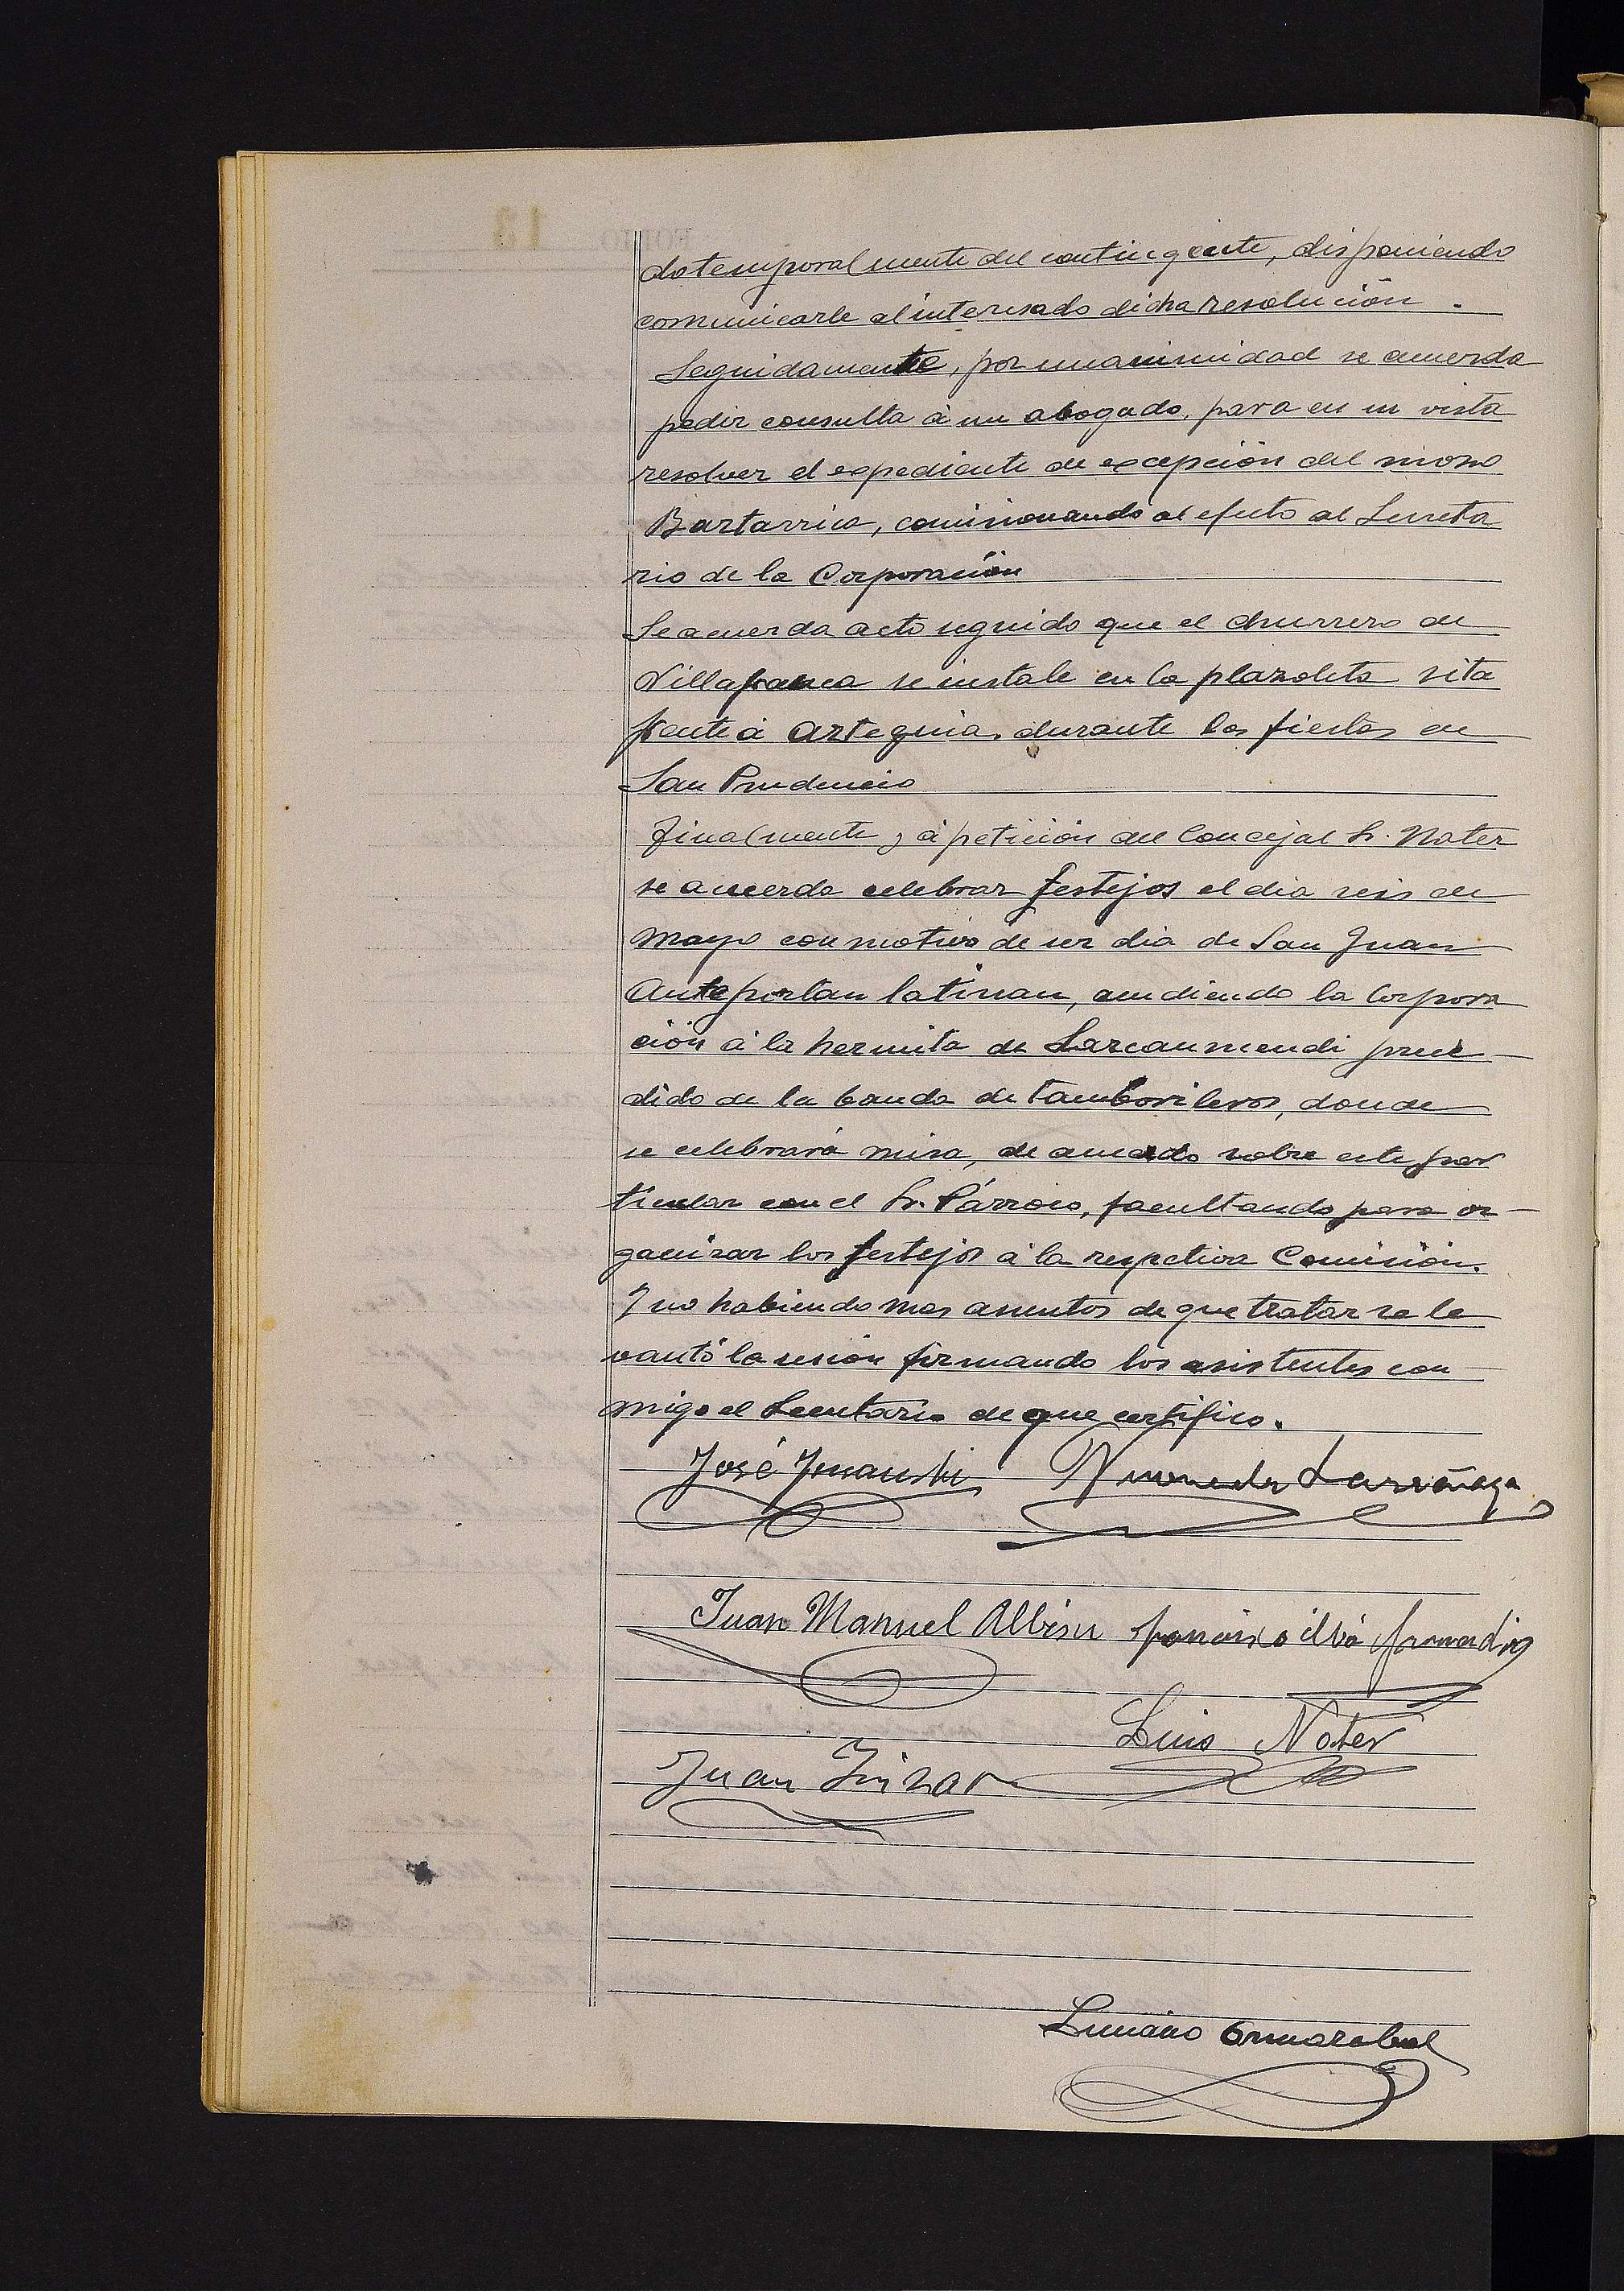 do temporalmente del contingente, disponiendo
comunicarle al interesado dicha resolución.
Seguidamente, por unanimidad se acuerda
pedir consulta á un abogado, para en su vista
resolver el expediente de excepción del mozo
Bartarrica, comisionando al efecto al Secreta
rio de la Corporación
Se acuerda acto seguido que el churrero de
Villafranca se instale en la plazoleta sita
frente á Arteguia, durante las fiestas de
San Prudencio
Finalmente, á petición del Concejal Sr. Noter
se acuerda celebrar festejos el dia seis de
Mayo con motivo de ser dia de San Juan
Anteportan latinan, acudiendo la Corpora
ción á la hermita de Larcaumendi prece
dido de la banda de tamborileros, donde
se celebrará misa, de acuerdo sobre este par
ticular con el Sr. Párroco, facultando para or
ganizar los festejos á la respetiva Comisión.
Y no habiendo mas asuntos de que tratar se le
vantó la sesión firmando los asistentes con
migo el Secretario de que certifico.
José
Larrañaga
Juan Manuel Albisu
Luis Noter
Juan
Luciano